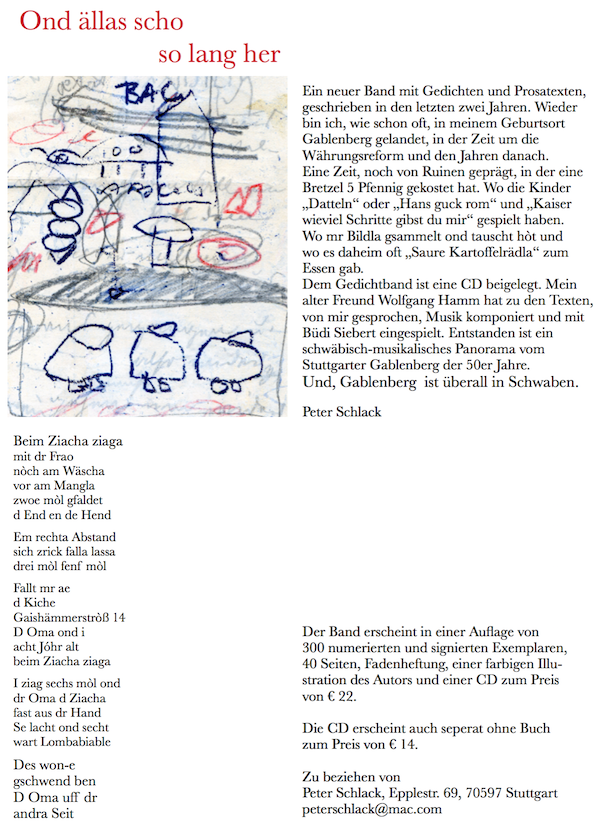 Ond ällas scho
so lang her
BAC
Ein neuer Band mit Gedichten und Prosatexten,
geschrieben in den letzten zwei Jahren. Wieder
bin ich, wie schon oft, in meinem Geburtsort
Gablenberg gelandet, in der Zeit um die
Währungsreform und den Jahren danach.
Eine Zeit, noch von Ruinen geprägt, in der eine
Bretzel 5 Pfennig gekostet hat. Wo die Kinder
„Datteln“ oder „Hans guck rom“ und „Kaiser
wieviel Schritte gibst du mir“ gespielt haben.
Wo mr Bildla gsammelt ond tauscht hòt und
wo es daheim oft „Saure Kartoffelrädla“ zum
Essen gab.
Dem Gedichtband ist eine CD beigelegt. Mein
alter Freund Wolfgang Hamm hat zu den Texten,
von mir gesprochen, Musik komponiert und mit
Büdi Siebert eingespielt. Entstanden ist ein
schwäbisch-musikalisches Panorama vom
Stuttgarter Gablenberg der 50er Jahre.
Und, Gablenberg ist überall in Schwaben.
Peter Schlack
Beim Ziacha ziaga
mit dr Frao
nòch am Wäscha
vor am Mangla
zwoe mòl gfaldet
d End en de Hend
Em rechta Abstand
sich zrick falla lassa
drei mòl fenf mòl
Fallt mr ae
d Kiche
Gaishämmerstròß 14
D Oma ond i
acht Jóhr alt
beim Ziacha ziaga
I ziag sechs mòl ond
dr Oma d Ziacha
fast aus dr Hand
Se lacht ond secht
wart Lombabiable
Des won-e
gschwend ben
D Oma uff dr
andra Seit
Der Band erscheint in einer Auflage von
300 numerierten und signierten Exemplaren,
40 Seiten, Fadenheftung, einer farbigen Illu-
stration des Autors und einer CD zum Preis
von € 22.
Die CD erscheint auch seperat ohne Buch
zum Preis von € 14.
Zu beziehen von
Peter Schlack, Epplestr. 69, 70597 Stuttgart
peterschlack@mac.com